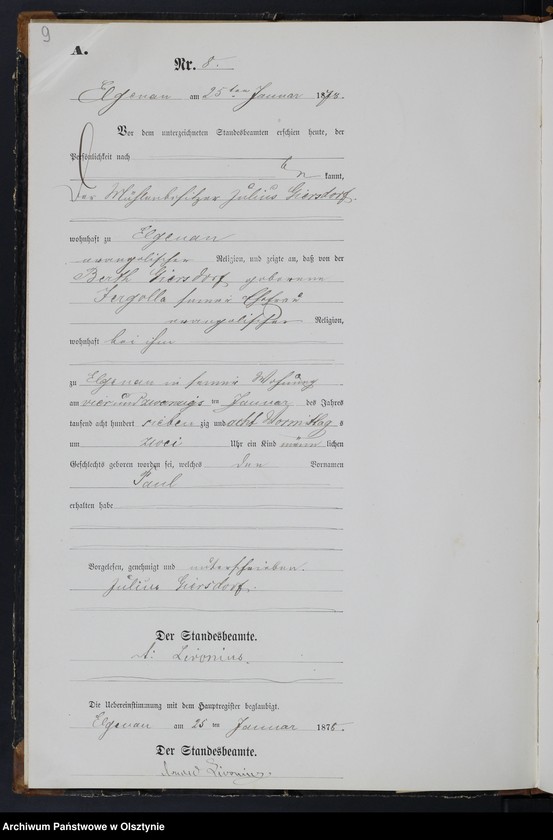 9
A.
Nr. 8.
Elgenau am 25ten Januar 1878.
Vor dem unterzeichneten Standesbeamten erschien heute, der
Persönlichkeit nach
kannt,
Der Mühlenbesitzer Julius Giersdorf.
wohnhaft zu Elgenau
evangelischer Religion, und zeigte an, daß von der
Berth Giersdorf geborene
Jergolla seiner Ehefrau
evangelischer Religion,
wohnhaft bei ihm
zu Elgenau in seiner Wohnung
am vier und zwanzigs ten Januar des Jahres
tausend acht hundert sieben zig und acht Vormittag s
um zwei Uhr ein Kind männ lichen
Geschlechts geboren worden sei, welches den Vornamen
Paul
erhalten habe
Vorgelesen, genehmigt und unterschrieben.
Julius Giersdorf.
Der Standesbeamte.
Livonius.
Die Uebereinstimmung mit dem Hauptregister beglaubigt.
Elgenau am 25 ten Januar 1878.
Der Standesbeamte.
Livonius.
Archiwum Państwowe w Olsztynie